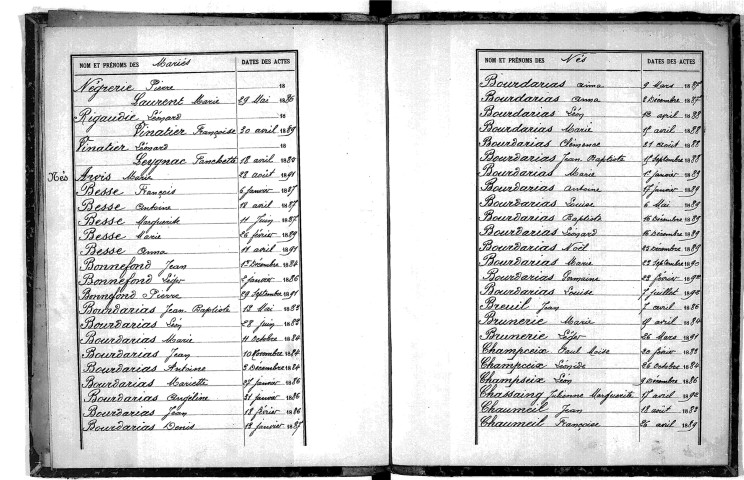 NOM ET PRÉNOMS DES Mariés DATES DES ACTES
Négrerie Pierre 18
Laurent Marie 29 Mai 1886
Rigaudie Léonard 18
Vinatier Françoise 30 avril 1889
Vinatier Léonard 18
Leygnac Fanchette 18 avril 1880
Nés Arvis Marie 28 août 1891
Besse François 6 janvier 1887
Besse Antoine 18 avril 1887
Besse Marguerite 11 Juin 1887
Besse Marie 26 février 1889
Besse Anna 11 avril 1891
Bonnefond Jean 1er Décembre 1884
Bonnefond Léger 2 janvier 1886
Bonnefond Pierre 29 Septembre 1891
Bourdarias Jean Baptiste 18 Mai 1883
Bourdarias Léon 28 juin 1883
Bourdarias Marie 11 Octobre 1884
Bourdarias Jean 10 Novembre 1884
Bourdarias Antoine 3 Décembre 1884
Bourdarias Mariette 27 janvier 1886
Bourdarias Angéline 31 janvier 1886
Bourdarias Jean 18 février 1886
Bourdarias Denis 13 janvier 1887
NOM ET PRÉNOMS DES Nés DATES DES ACTES
Bourdarias Anna 9 Mars 1887
Bourdarias Anna 2 Décembre 1887
Bourdarias Léon 13 avril 1888
Bourdarias Marie 17 avril 1888
Bourdarias Clémence 21 août 1888
Bourdarias Jean Baptiste 17 Septembre 1888
Bourdarias Marie 1er janvier 1889
Bourdarias Antoine 17 janvier 1889
Bourdarias Louise 6 Mai 1889
Bourdarias Baptiste 16 Décembre 1889
Bourdarias Léonard 16 Décembre 1889
Bourdarias Noël 25 Décembre 1889
Bourdarias Marie 23 Septembre 1890
Bourdarias Germaine 22 février 1892
Bourdarias Louise 7 juillet 1892
Breuil Jean 7 avril 1886
Brunerie Marie 19 avril 1884
Brunerie Léger 26 Mars 1891
Champceix Paul Moïse 20 février 1883
Champceix Léonide 26 Octobre 1884
Champseix Léon 9 Décembre 1886
Chassaing Julienne Marguerite 18 avril 1892
Chaumeil Jean 18 août 1883
Chaumeil Françoise 26 avril 1889